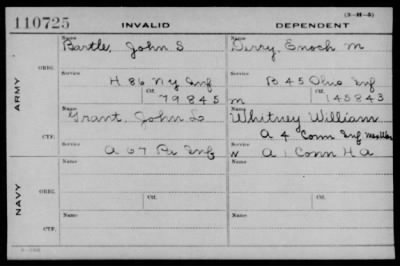 110725 INVALID DEPENDENT (3-H-5)
ARMY ORIG. Name Bartle, John S Name Derry, Enoch M
Service H 86 NY Inf Service B 45 Ohio Inf
Ctf. 79845 m Ctf. 145843
CTF. Name Grant, John L Name Whitney William
A 4 Conn Inf
Service A 67 Pa Inf Service A 1 Conn H A
NAVY ORIG. Name Name
Service Ctf. Service Ctf.
CTF. Name Name
Service Service